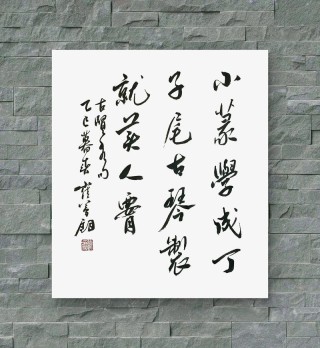 小篆學成丁
子尾古琴製
就美人脣
古賢句
乙巳暮春